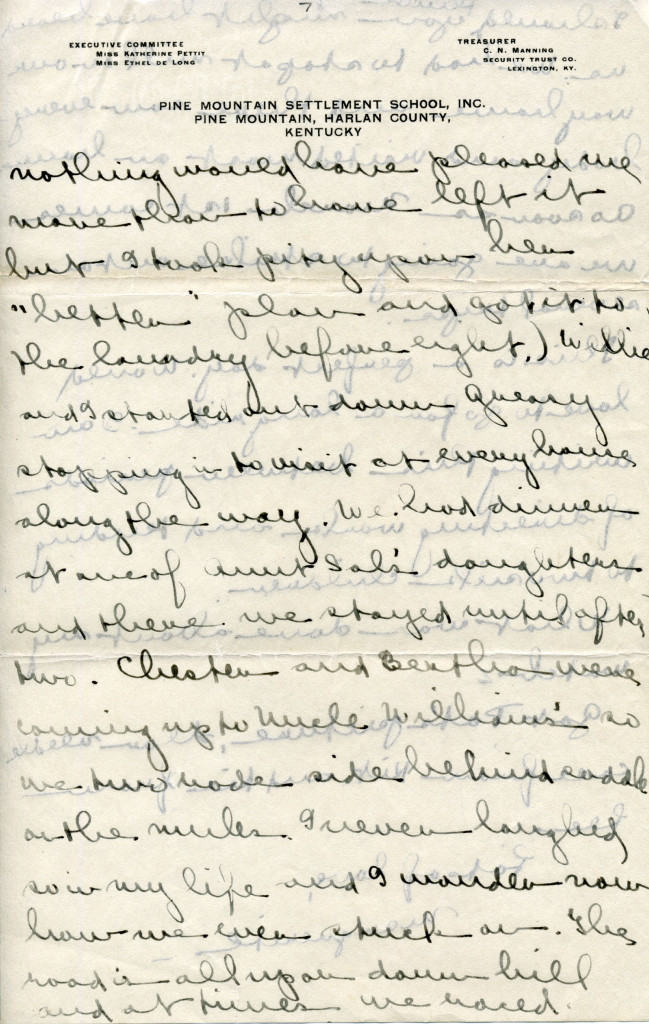 7
EXECUTIVE COMMITTEE
MISS KATHERINE PETTIT
MISS ETHEL DE LONG
TREASURER
C. N. MANNING
SECURITY TRUST CO.
LEXINGTON, KY.
PINE MOUNTAIN SETTLEMENT SCHOOL, INC.
PINE MOUNTAIN, HARLAN COUNTY,
KENTUCKY
nothing would have pleased me
more than to have left it
but I took pity upon her
"better" plan and got it to
the laundry before eight.) Willie
and I started out down Greasy
stopping in to visit at every home
along the way. We had dinner
at one of Aunt Sal's daughters
and there we stayed until after
two. Chester and Bertha were
coming up to Uncle William's so
we two rode side behind saddle
on the mules. I never laughed
so in my life and I wonder now
how we ever stuck on. The
road is all up or down hill
and at times we raced.